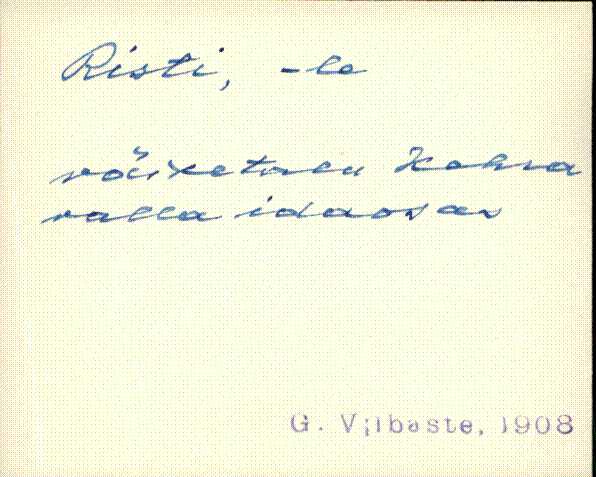 Risti, -le
väiketalu Kehra
valla idaosas
G. Vilbaste, 1908